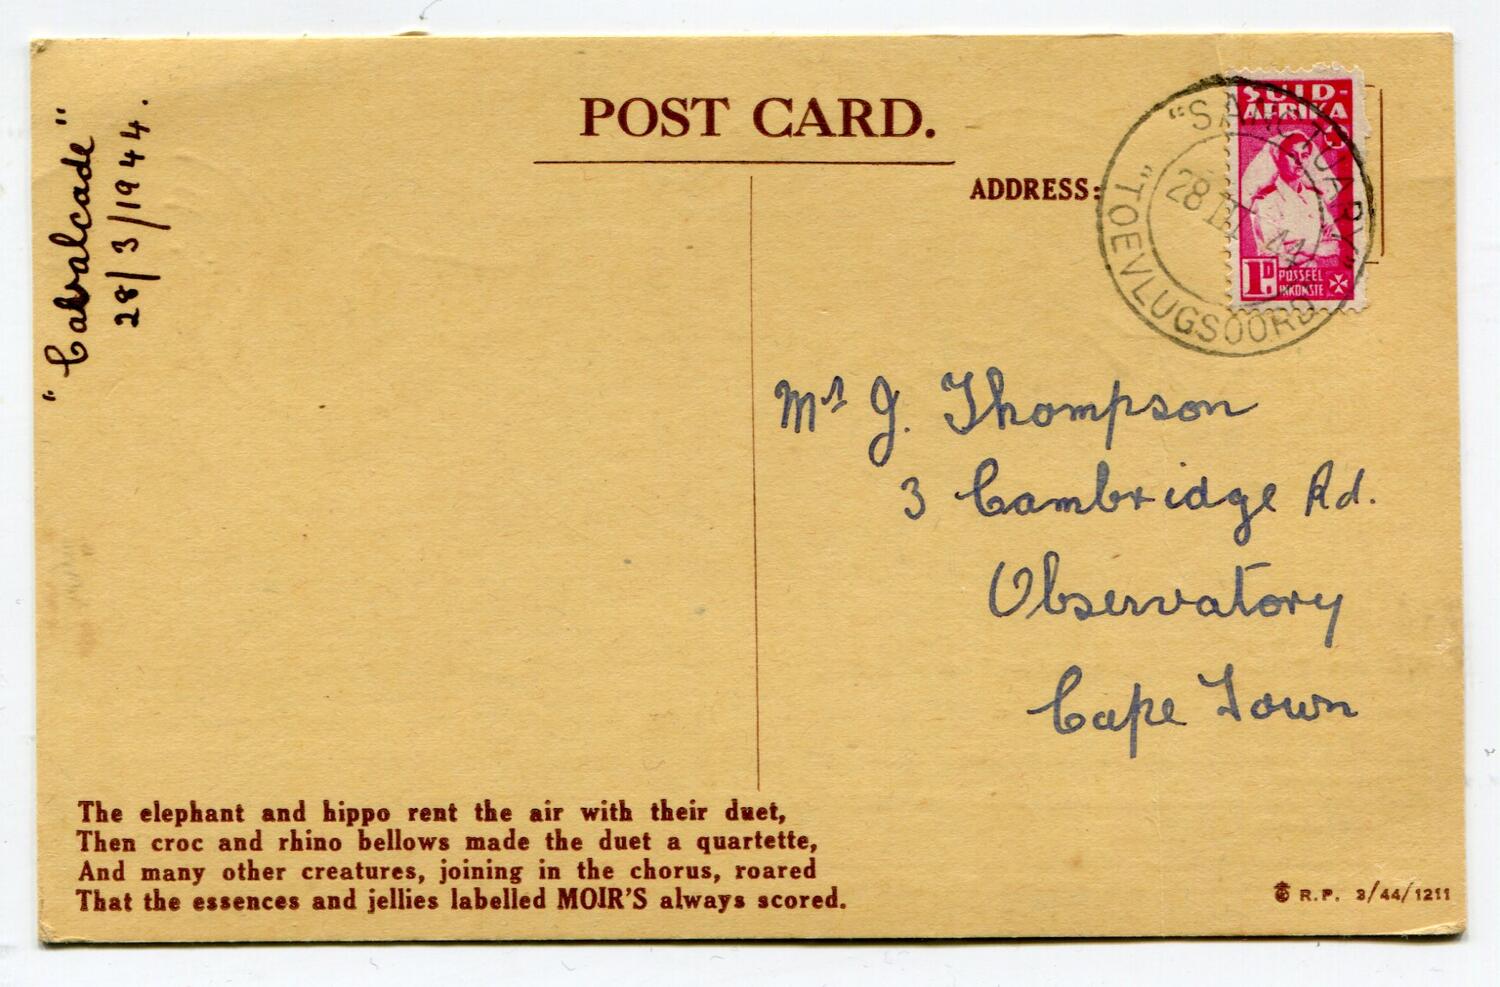 "Cavalcade"
28/3/1944.
POST CARD.
ADDRESS:
"SANCTUARY"
"TOEVLUGSOORD"
28 III 44
SUID-
AFRIKA
1D.
POSSEËL
INKOMSTE
Mrs J. Thompson
3 Cambridge Rd.
Observatory
Cape Town
The elephant and hippo rent the air with their duet,
Then croc and rhino bellows made the duet a quartette,
And many other creatures, joining in the chorus, roared
That the essences and jellies labelled MOIR'S always scored.
R.P. 3/44/1211